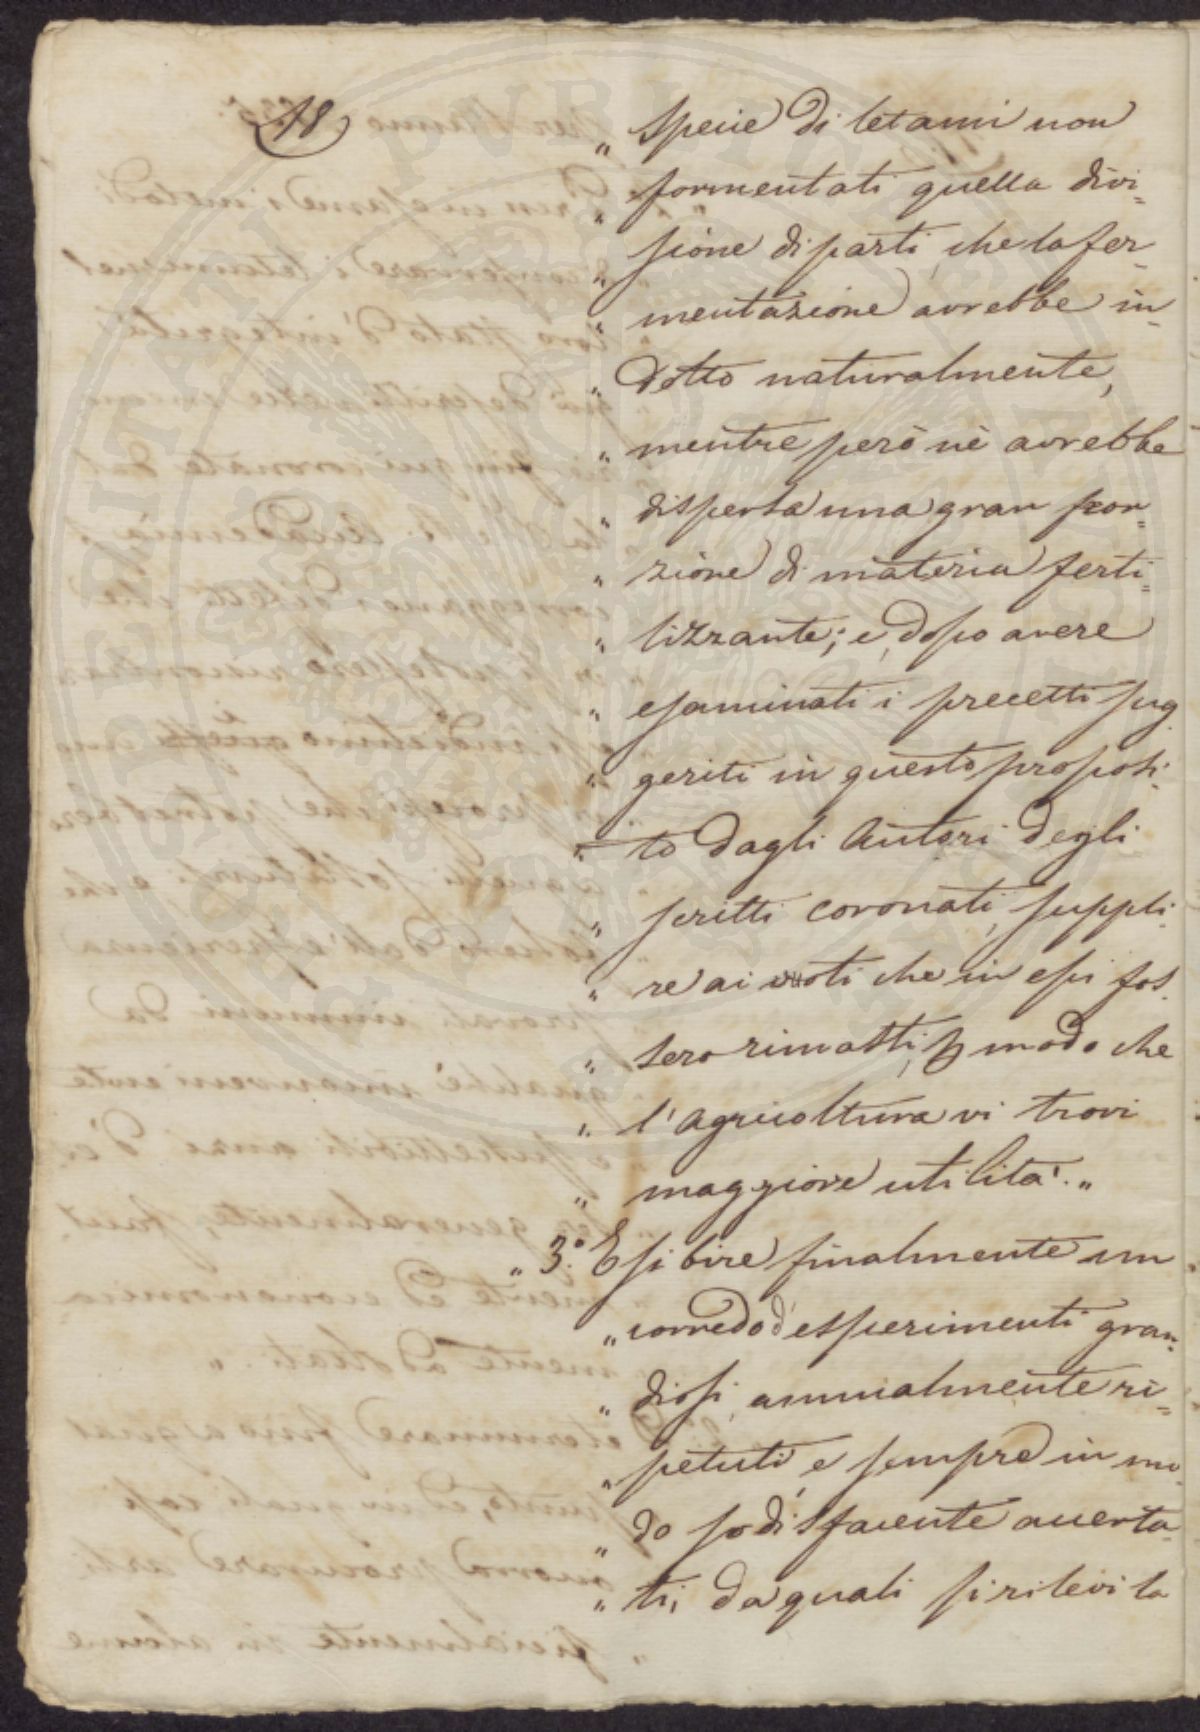 18
„ specie di letami non
„ formentati quella divi=
„ sione di parti, che la fer=
„ mentazione avrebbe in=
„ dotto naturalmente,
„ mentre però nè avrebbe
„ dispersa una gran por=
„ zione di materia ferti=
„ lizzante; e, dopo avere
„ esaminati i precetti sug=
„ geriti in questo proposi=
„ to dagli Autori degli
„ scritti coronati, suppli=
„ re ai vuoti che in essi fos=
„ sero rimasti, modo che
„ l'agricoltura vi trovi
„ maggiore utilita'. „
„ 3.° Esibire finalmente un
„ corredo d'esperimenti gran=
„ diosi, annualmente ri=
„ petuti, e sempre in mo=
„ do sodisfacente accerta=
„ ti, da quali si rilevi la